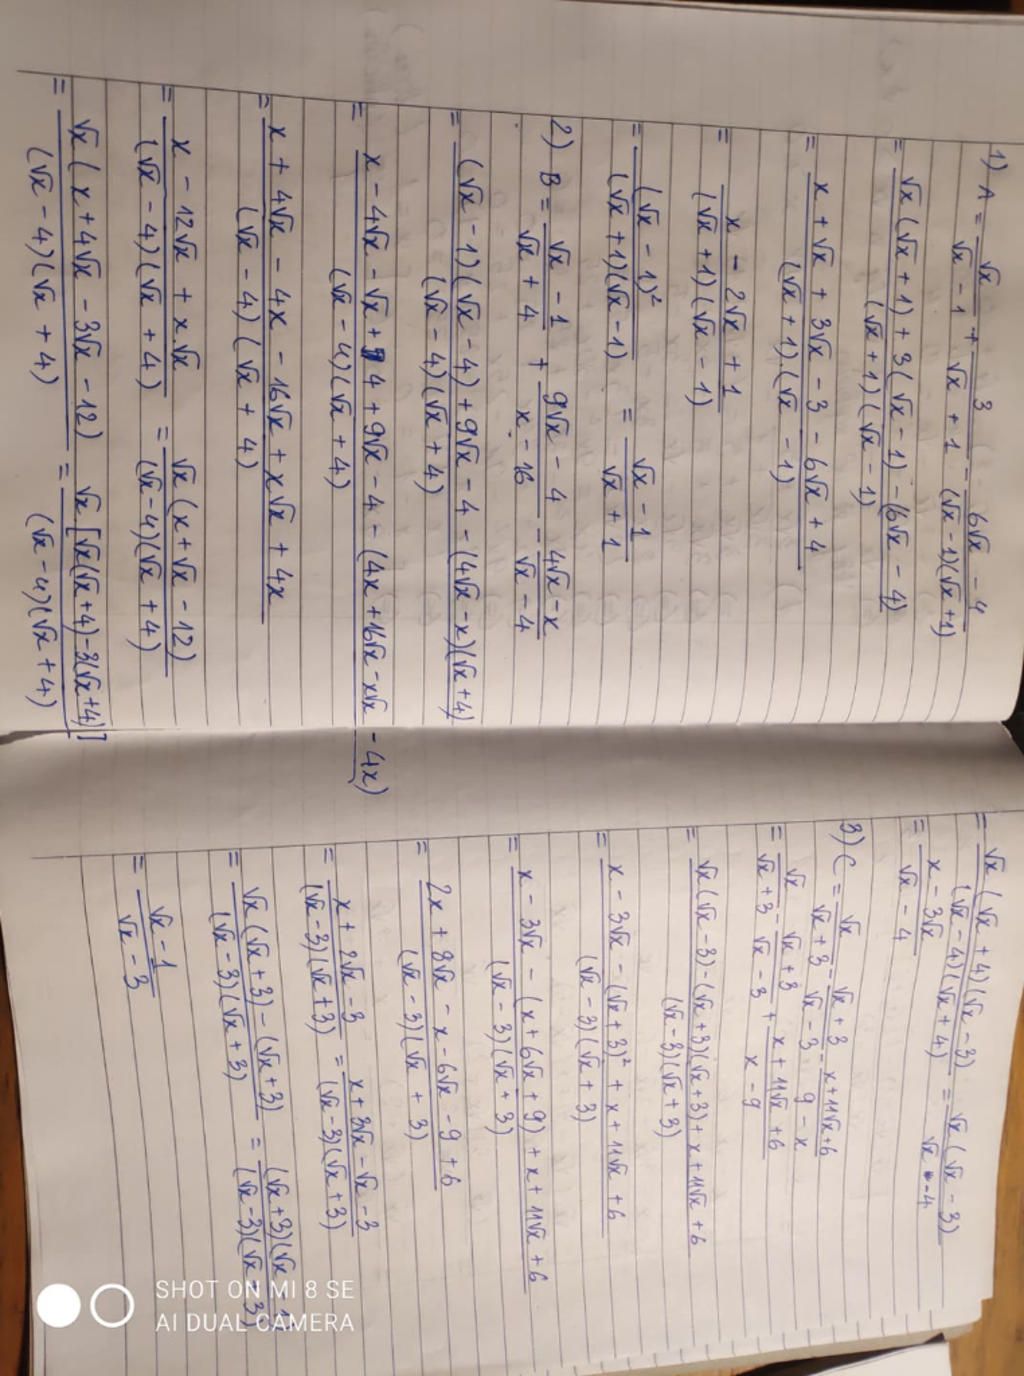 1) A = √x / (√x - 1) + 3 / (√x + 1) - (6√x - 4) / ((√x - 1)(√x + 1))
= (√x(√x + 1) + 3(√x - 1) - (6√x - 4)) / ((√x + 1)(√x - 1))
= (x + √x + 3√x - 3 - 6√x + 4) / ((√x + 1).(√x - 1))
= (x - 2√x + 1) / ((√x + 1)(√x - 1))
= (√x - 1)² / ((√x + 1)(√x - 1)) = (√x - 1) / (√x + 1)
2) B = (√x - 1) / (√x + 4) + (9√x - 4) / (x - 16) - (4√x - x) / (√x - 4)
= ((√x - 1)(√x - 4) + 9√x - 4 - (4√x - x)(√x + 4)) / ((√x - 4)(√x + 4))
= (x - 4√x - √x + 4 + 9√x - 4 - (4x + 16√x - x√x - 4x)) / ((√x - 4)(√x + 4))
= (x + 4√x - 4x - 16√x + x√x + 4x) / ((√x - 4)(√x + 4))
= (x - 12√x + x.√x) / ((√x - 4)(√x + 4)) = √x(x + √x - 12) / ((√x - 4)(√x + 4))
= √x(x + 4√x - 3√x - 12) / ((√x - 4)(√x + 4)) = √x[√x(√x + 4) - 3(√x + 4)] / ((√x - 4)(√x + 4))
= √x(√x + 4)(√x - 3) / ((√x - 4)(√x + 4)) = √x(√x - 3) / (√x - 4)
= (x - 3√x) / (√x - 4)
3) C = √x / (√x + 3) - (√x + 3) / (√x - 3) - (x + 11√x + 6) / (9 - x)
= √x / (√x + 3) - (√x + 3) / (√x - 3) + (x + 11√x + 6) / (x - 9)
= (√x(√x - 3) - (√x + 3)(√x + 3) + x + 11√x + 6) / ((√x - 3)(√x + 3))
= (x - 3√x - (√x + 3)² + x + 11√x + 6) / ((√x - 3)(√x + 3))
= (x - 3√x - (x + 6√x + 9) + x + 11√x + 6) / ((√x - 3)(√x + 3))
= (2x + 8√x - x - 6√x - 9 + 6) / ((√x - 3)(√x + 3))
= (x + 2√x - 3) / ((√x - 3)(√x + 3)) = (x + 3√x - √x - 3) / ((√x - 3)(√x + 3))
= (√x(√x + 3) - (√x + 3)) / ((√x - 3)(√x + 3)) = (√x + 3)(√x - 1) / ((√x - 3)(√x + 3))
= (√x - 1) / (√x - 3)
SHOT ON MI 8 SE
AI DUAL CAMERA